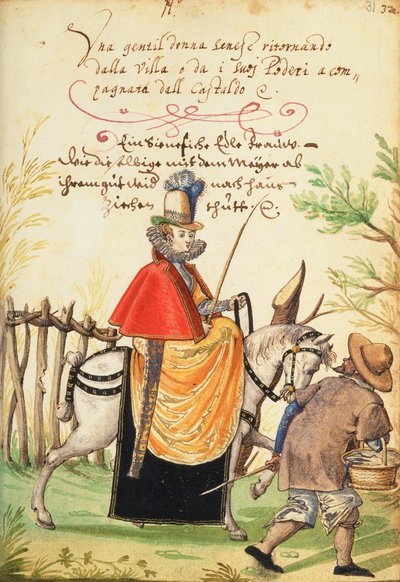 31 32.
Una gentil donna senese ritornando
dalla Villa o da i suoi Poderi acom„
pagnata dall Castaldo &.
Ein Sienesische Edle Fraw
wie die selbige mit dem Meyer ab
ihrem gut und nach haus
Ziechen thutt. &.